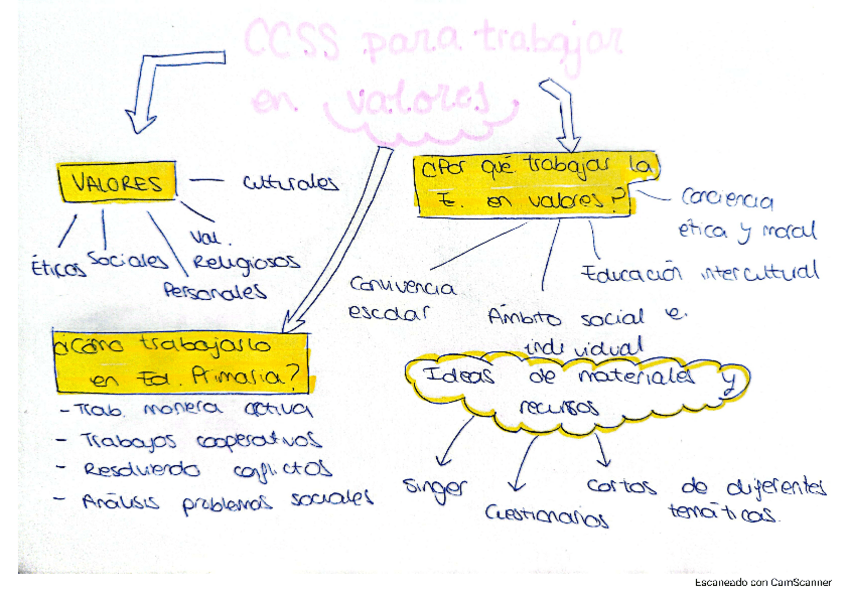 CCSS para trabajar
en valores
VALORES
culturales
Éticos
Sociales
Val.
Religiosos
Personales
¿Por qué trabajar la
E. en valores?
Conciencia
ética y moral
Educación intercultural
Ámbito social e
individual
Convivencia
escolar
¿Cómo trabajarlo
en Ed. Primaria?
- Trab. manera activa
- Trabajos cooperativos
- Resolviendo conflictos
- Análisis problemas sociales
Ideas de materiales y
recursos
Singer
Cuestionarios
Cortos de diferentes
temáticas.
Escaneado con CamScanner